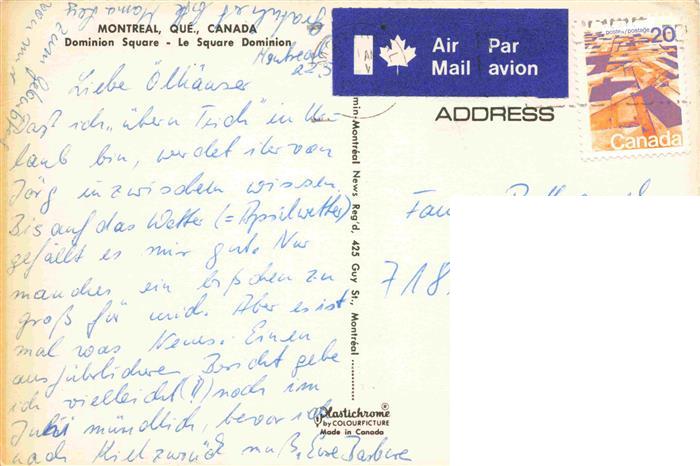 MONTREAL, QUE., CANADA
Dominion Square - Le Square Dominion
Montreal
Liebe Ölhäuser
Daß ich „übern Teich" in Ur-
laub bin, werdet ihr von
Jörg inzwischen wissen.
Bis auf das Wetter (= Aprilwetter)
gefällt es mir gut. Nur
manches ein bißchen zu
groß für mich. Aber es ist
mal was Neues. Einen
ausführlicheren Bericht gebe
ich vielleicht (!!) noch im
Juli mündlich, bevor ich
nach Kiel zurück muß. Eure Barbara
zum
Air Mail
Par avion
postes/postage
20
Canada
ADDRESS
718
min-Montréal News Reg'd, 425 Guy St., Montréal
Plastichrome
by COLOURPICTURE
Made in Canada